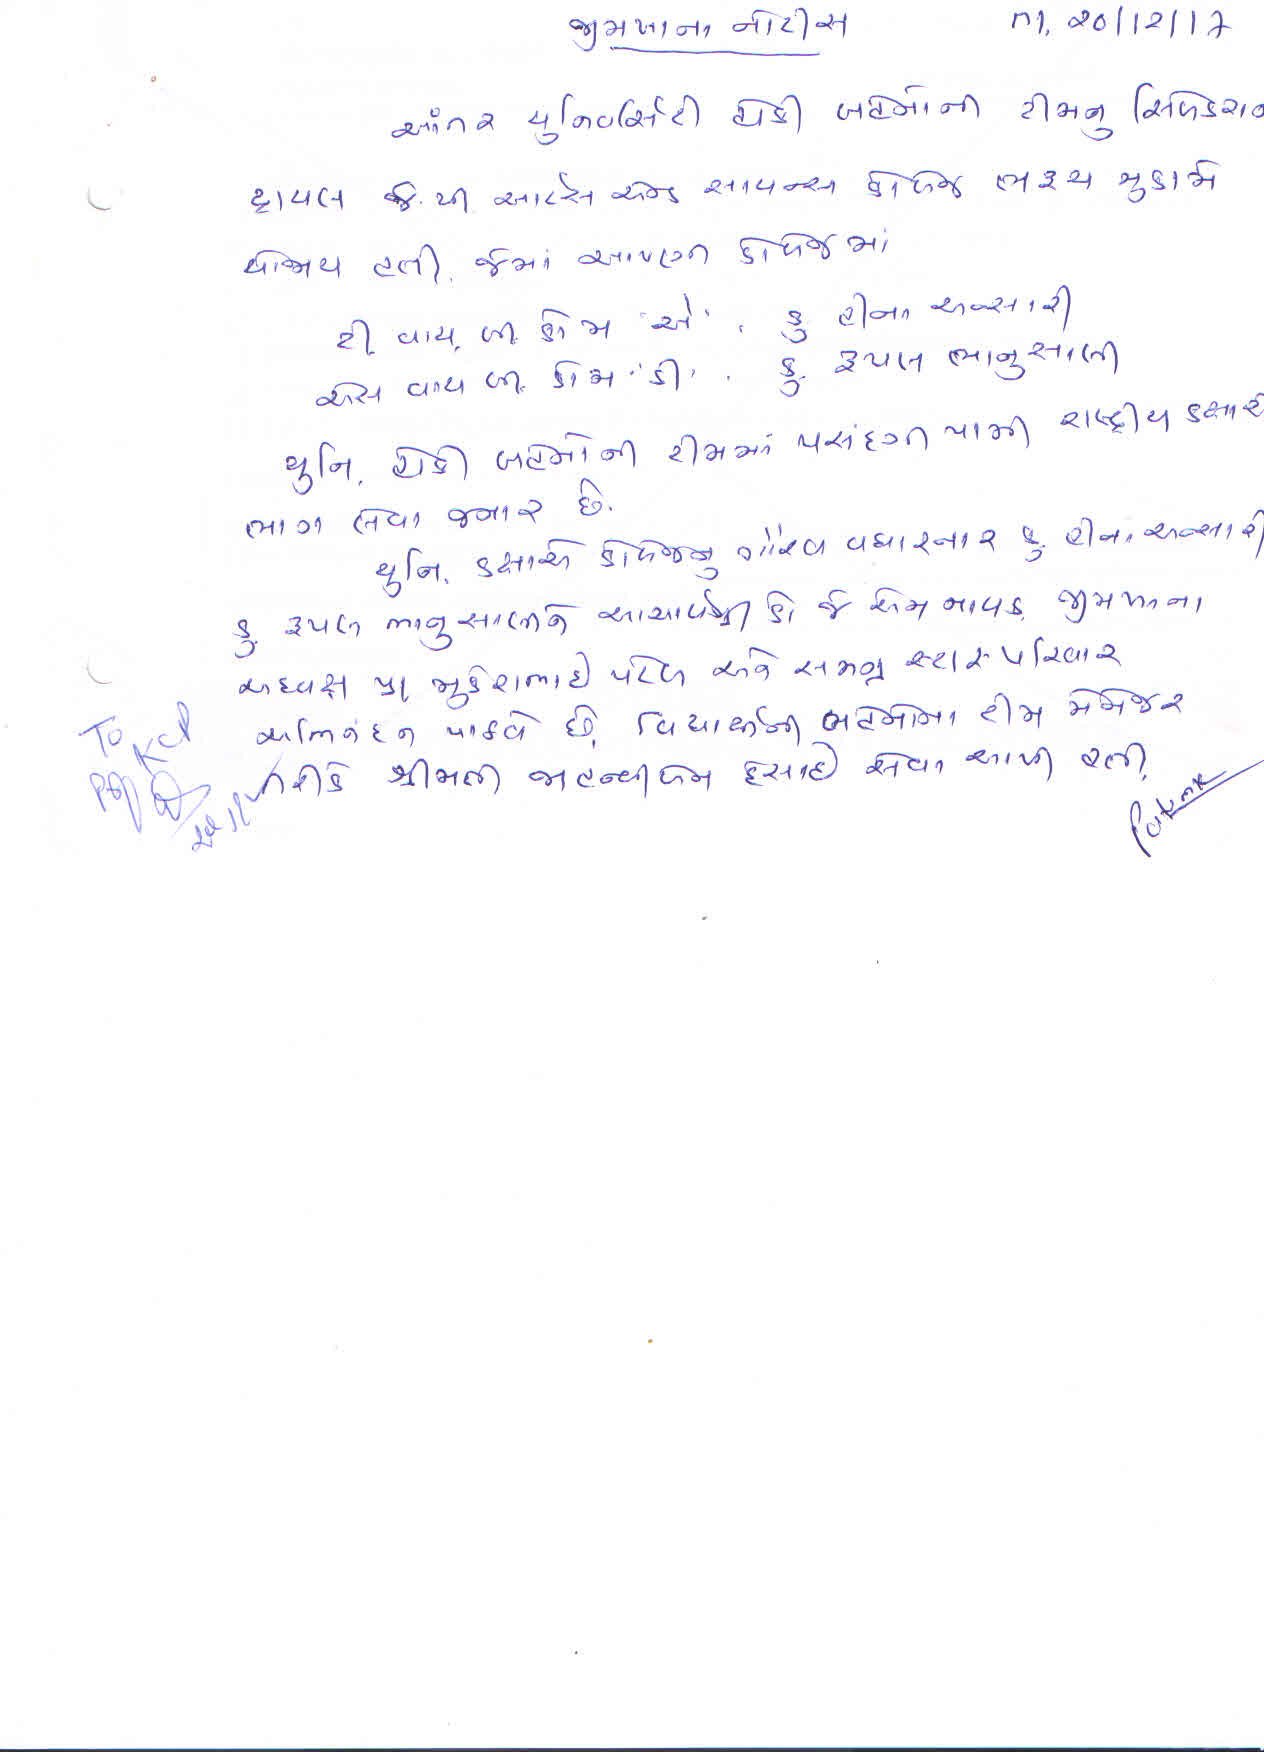 જીમખાના નોટીસ
તા. ૨૦/૧૨/૧૭
આંતર યુનિવર્સિટી હોકી બહેનોની ટીમનુ સિલેકશન
ટ્રાયલ જે.પી. આર્ટસ એન્ડ સાયન્સ કોલેજ ભરૂચ મુકામે
યોજાય હતી. જેમાં આપણી કોલેજમાં
ટી. વાય. બી. કોમ 'એ'. કુ હીના અન્સારી
એસ વાય બી. કોમ 'ડી'. કુ. રૂપલ ભાનુસાલી
યુનિ. હોકી બહેનોની ટીમમાં પસંદગી પામી રાષ્ટ્રીય કક્ષાએ
ભાગ લેવા જનાર છે.
યુનિ. કક્ષાએ કોલેજનુ ગૌરવ વધારનાર કુ. હીના અન્સારી
કુ. રૂપલ ભાનુસાલીને આચાર્યશ્રી ડો જે એમ નાયક, જીમખાના
અધ્યક્ષ પ્રા. મુકેશભાઇ પટેલ અને સમગ્ર સ્ટાફ પરિવાર
અભિનંદન પાઠવે છે. વિદ્યાર્થીની બહેનોના ટીમ મેનેજર
તરીકે શ્રીમતી દેસાઇ સેવા આપી હતી.
To